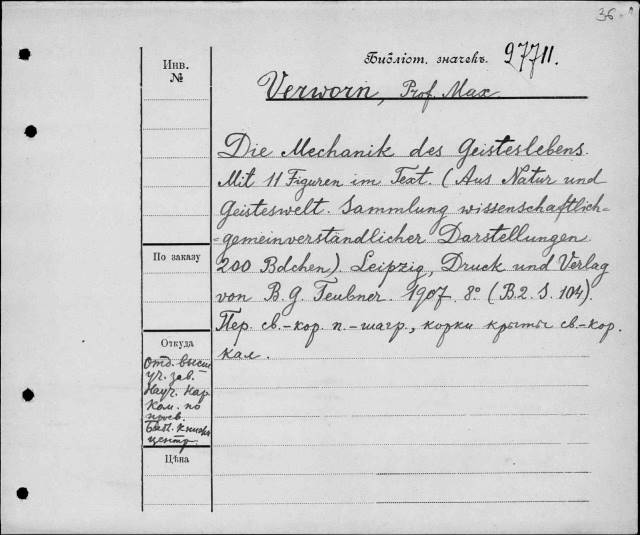 36.
Инв.
№
Библіот. значекъ. 97711.
Verworn, Prof. Max.
Die Mechanik des Geisteslebens.
Mit 11 Figuren im Text. (Aus Natur und
Geisteswelt. Sammlung wissenschaftlich-
-gemeinverständlicher Darstellungen.
200 Bdchen). Leipzig, Druck und Verlag
von B. G. Teubner. 1907. 8° (B.2. S. 104).
Пер. св.-кор. п.-шагр., корки крыты св.-кор.
кал.
По заказу
Откуда
Отд. высш
уч. зав.
Науч. Нар
Ком. по
просв.
Цѣна